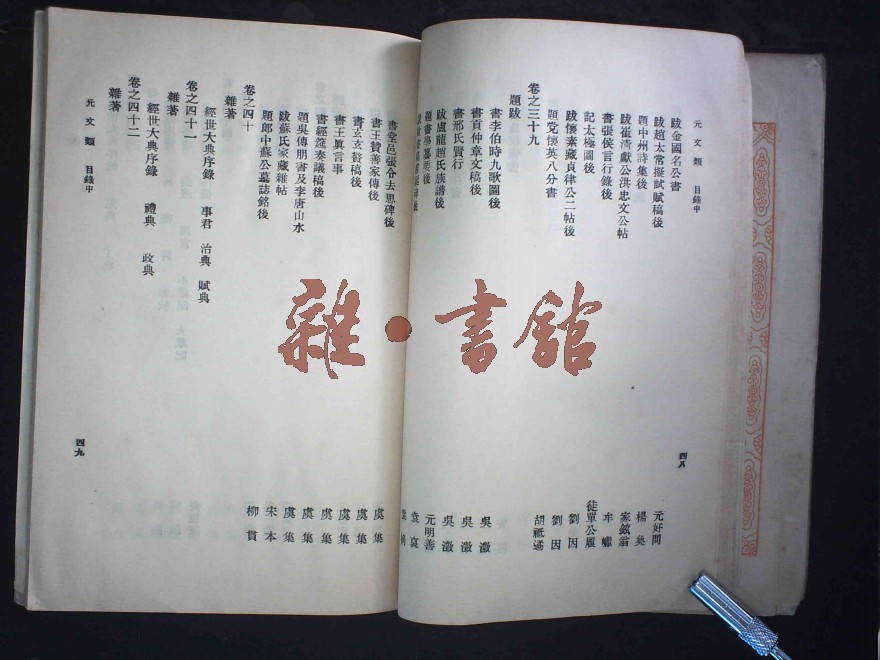 元文類 目錄中
跋金國名公書 元好問
跋趙太常擬試賦稿後 楊奐
題中州詩集後 家鉉翁
跋崔清獻公洪忠文公帖 牟巘
書張侯言行錄後 徒單公履
記太極圖後 劉因
跋懷素藏真律公二帖後 劉因
題党懷英八分書 胡祗遹
卷之三十九
題跋
書李伯時九歌圖後 吳澂
書貢仲章文稿後 吳澂
書邢氏賢行 吳澂
跋盧龍趙氏族譜後 元明善
題書學纂要後 袁裒
四八
雜·書館
書堂邑張令去思碑後 虞集
書王贊善家傳後 虞集
書玄玄贅稿後 虞集
書王眞言事 虞集
書經筵奏議稿後 虞集
題吳傅朋書及李唐山水 虞集
跋蘇氏家藏雜帖 宋本
題郎中蘇公墓誌銘後 柳貫
卷之四十
雜著
經世大典序錄 事君 治典 賦典
卷之四十一
雜著
經世大典序錄 禮典 政典
卷之四十二
雜著
元文類 目錄中
四九